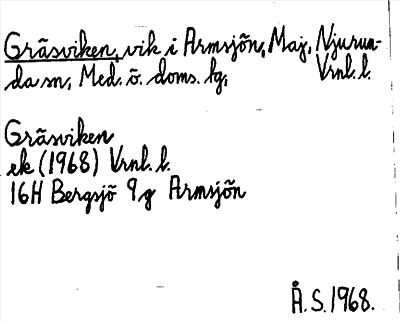 Gräsviken, vik i Armsjön, Maj, Njurun-
da sn, Med. ö. doms. lg, Vrnl. l.
Gräsviken
ek (1968) Vrnl. l.
16H Bergsjö 9g Armsjön
Å.S. 1968.